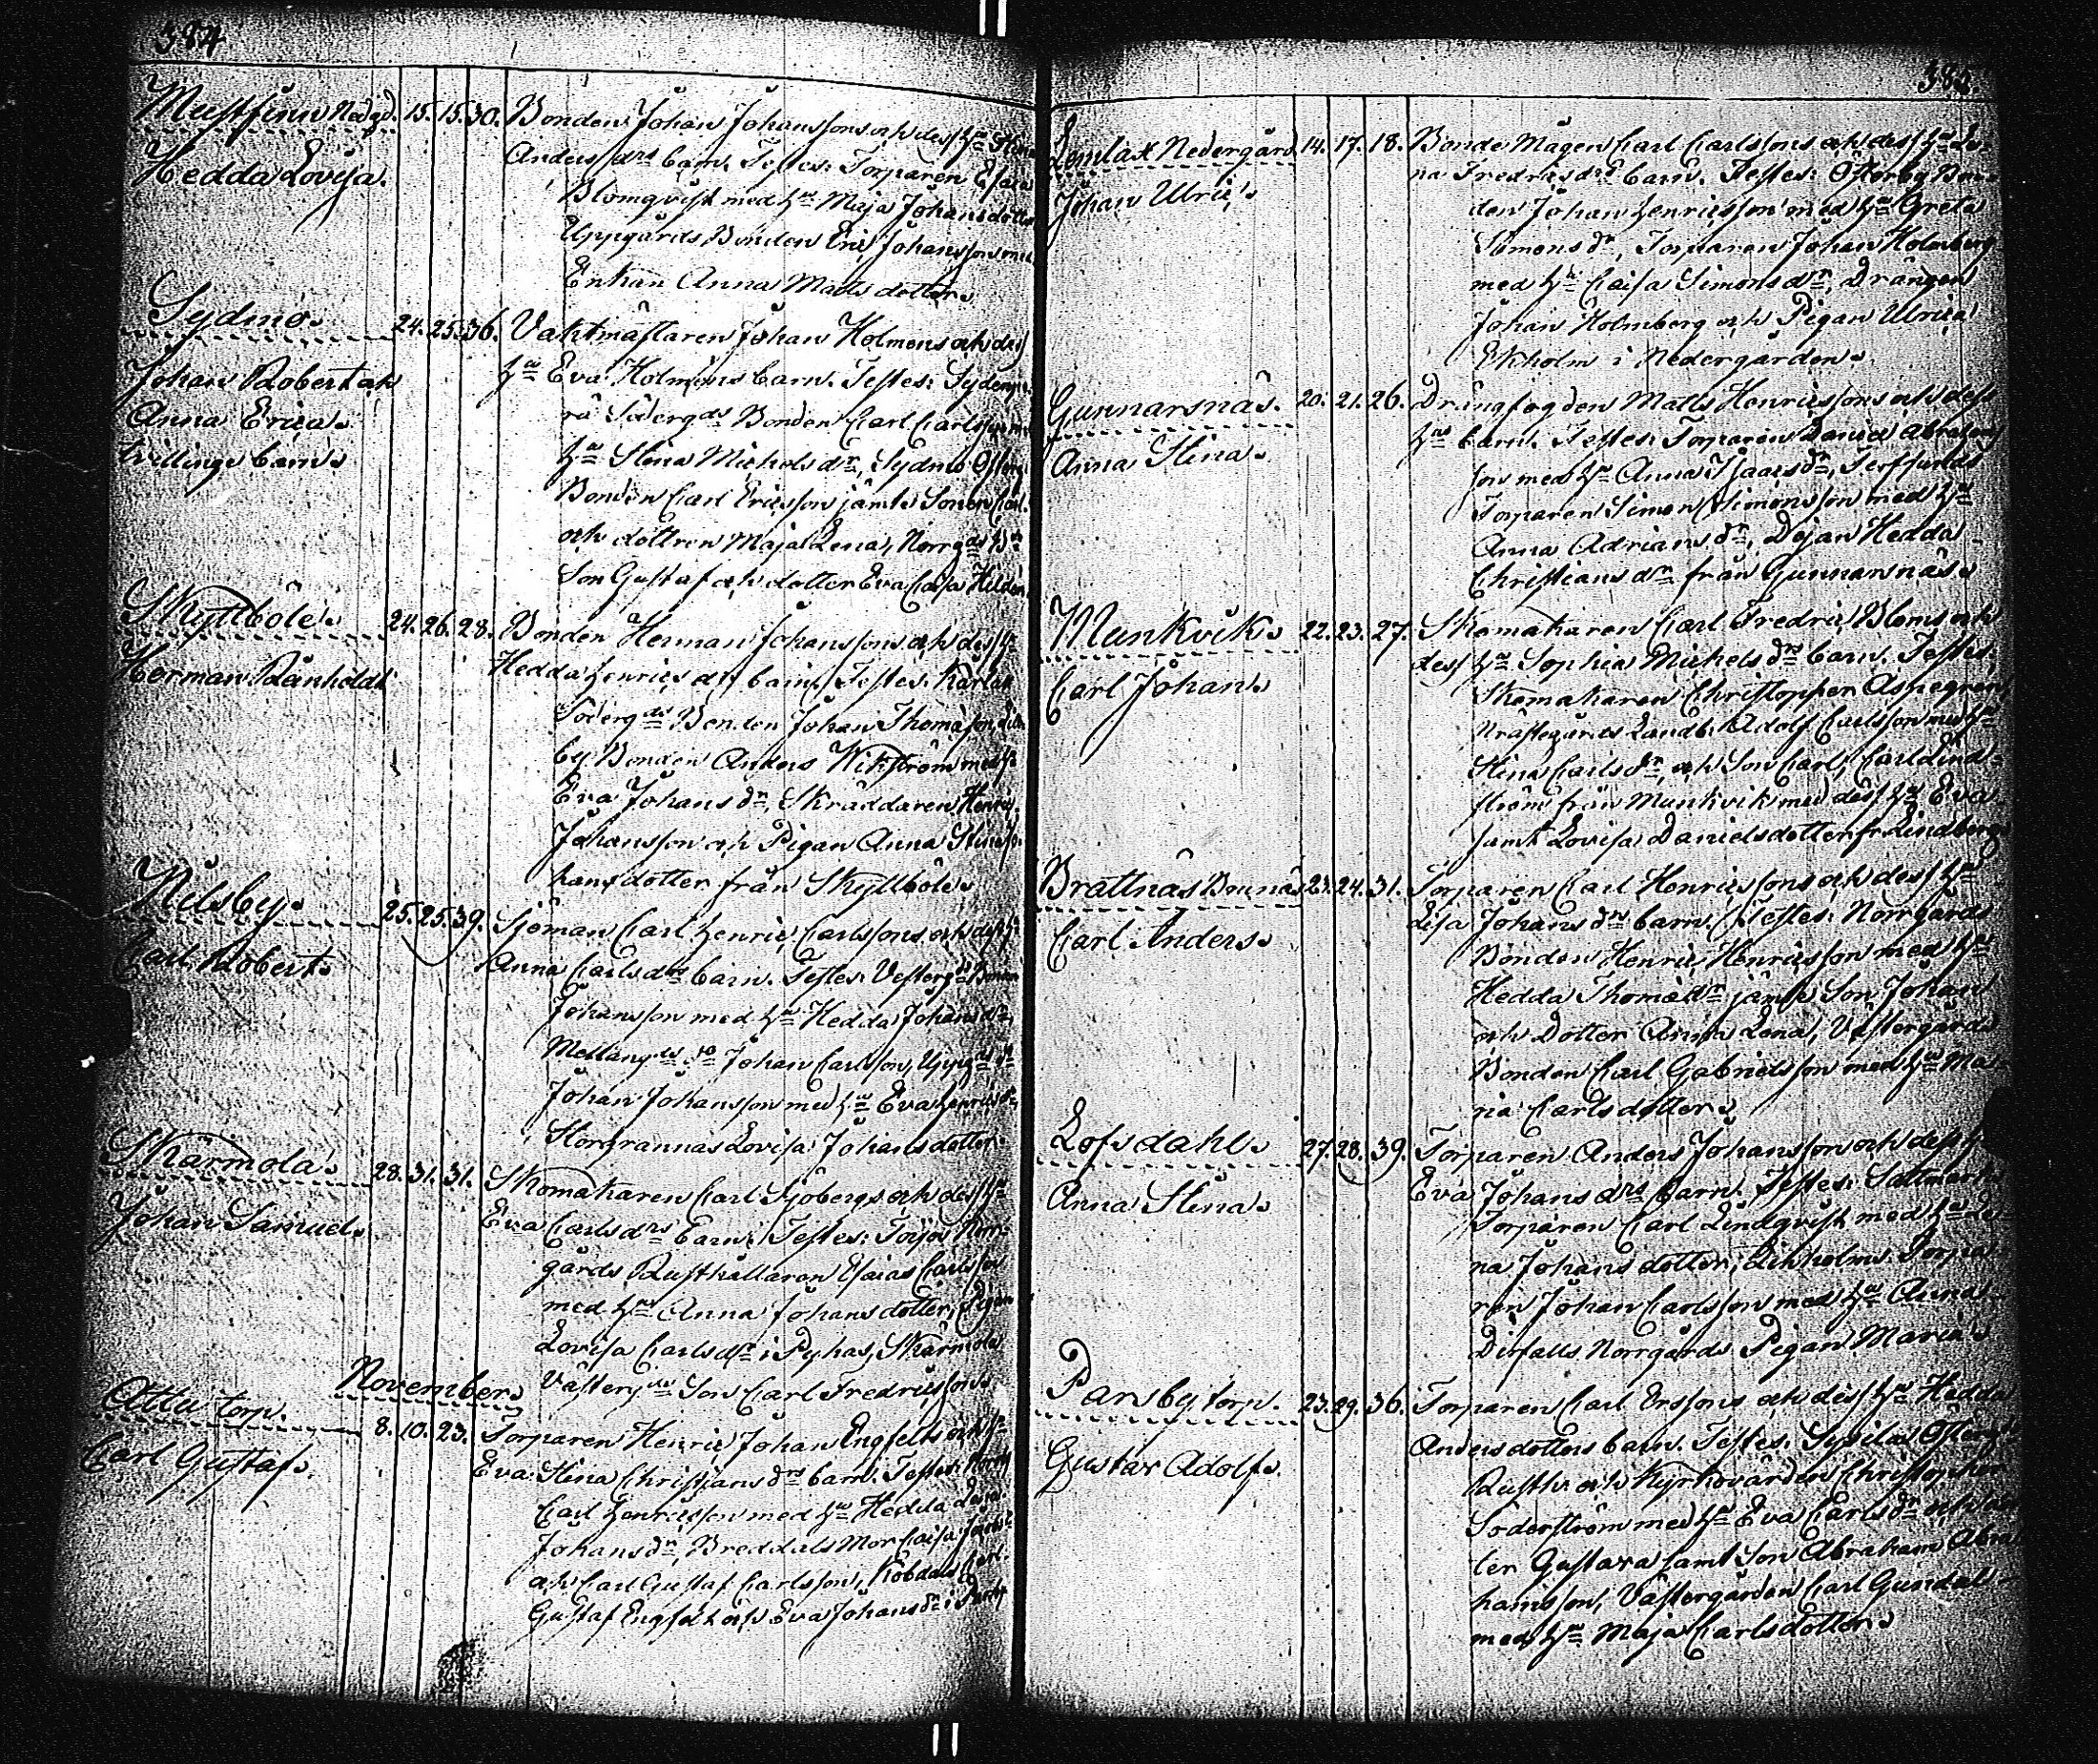 384.
Mustfinn Nedgd. 15. 15. 30. Bonden Johan Johanssons och dess hu Stina
Hedda Lovisa. Anders drs barn. Testes: Torparen Esaias
Blomqvist med hu Maja Johansdotter
Uppgårds Bonden Eric Johansson med
Enkan Anna Matts dotter.
Sydmo. 24. 25. 36. Vaktmästaren Johan Holmens och dess
Johan Robert och hu Eva Holmens barn. Testes: Sydmo
Anna Erica. Söderg ds Bonden Carl Carlsson med
tvillinge barn. hu Stina Michels dr, Sydmo Österg.
Bonden Carl Ericsson jämte Sonen Carl
och dottren Maja Lena, Norrg ds
Son Gustaf och dotter Eva Caisa Hildén
Skyttböle. 24. 26. 28. Bonden Herman Johanssons och dess hu
Herman Ranholdt Hedda Henrics drs barn. Testes: Karlax
Söderg ds Bonden Johan Thomasson,
by Bonden Anders Wikström med hu
Eva Johans dr, Skräddaren Henric
Johansson och Pigan Anna Stina Jo-
hansdotter från Skyttböle.
Nilsby. 25. 25. 39. Sjöman Carl Henric Carlssons och dess hu
Carl Robert. Anna Carls drs barn. Testes: Vesterg ds Bonden
Johansson med hu Hedda Johans dr,
Mellang ds do Johan Carlsson, Uppg ds do
Johan Johansson med hu Eva Henrics dr,
Storgrannas Lovisa Johansdotter.
Skärmola. 28. 31. 31. Skomakaren Carl Sjöbergs och dess hu
Johan Samuel. Eva Carls drs barn. Testes: Toijos Nor-
gårds Rusthållaren Esaias Carlsson
med hu Anna Johans dotter, Pigan
Lovisa Carls dr i Pyhas, Skärmola
Västerg ds Son Carl Fredricsson.
November.
Attu torp. 8. 10. 23. Torparen Henric Johan Engfelts och hu
Carl Gustaf. Eva Stina Christians drs barn. Testes:
Carl Henricsson med hu Hedda Lena
Johans dr, Breddals Mor Caisa
och Carl Gustaf Carlsson, Kobdals
Gustaf Engfelt och Eva Johans dr i
385.
Lemlax Nedergård. 14. 17. 18. Bonde Mågen Carl Carlssons och dess hu Le-
Johan Ulric. na Fredrics drs barn. Testes: Österby Bon-
den Johan Henricsson med hu Greta
Simons dr, Torparen Johan Holmberg
med hu Caisa Simons dr, Drängen
Johan Holmberg och Pigan Ulrica
Ekholm i Nedergården.
Gunnarsnäs. 20. 21. 26. Drängfogden Matts Henricssons och dess
Anna Stina. hus barn. Testes: Torparen Daniel Abrahams-
son med hu Anna Isaacs dr,
Torparen Simon Simonsson med hu
Anna Adrians dr, Dejan Hedda
Christians dr från Gunnarsnäs.
Munkvik. 22. 23. 27. Skomakaren Carl Fredric Bloms och
Carl Johan. dess hu Sophia Michels drs barn. Testes:
Skomakaren Christopher Aspegren,
Prästegårds Landb. Adolf Carlsson med hu
Stina Carls dr, och Son Carl, Carl Lind-
ström från Munkvik med dess hu Eva
samt Lovisa Danielsdotter fr Lindberg
Brattnäs Brunäs 23. 24. 31. Torparen Carl Henricssons och dess hu
Carl Anders. Lisa Johans drs barn. Testes: Norrgårds
Bonden Henric Henricsson med hu
Hedda Thomæ dr jämte Son Johan
och Dotter Anna Lena, Västergårds
Bonden Carl Gabrielsson med hu Ma
ria Carls dotter.
Lofsdahl. 27. 28. 39. Torparen Anders Johansson och dess hu
Anna Stina. Eva Johans drs barn. Testes: Sattmark
Torparen Carl Lindqvist med hu Le-
na Johans dotter, Ekholms Torpa-
ren Johan Carlsson med hu Anna
Norrgårds Pigan Maria
Parsby torp. 23. 29. 36. Torparen Carl Erssons och dess hu Hedda
Gustav Adolf. Andersdotters barn. Testes: Sysilax Österg ds
Rusth. och Kyrkovärden Christopher
Söderström med hu Eva Carls dr och dot
ter Gustava samt Son Abraham Abra
hamsson, Västergården Carl Gundel
med hu Maja Carlsdotter.